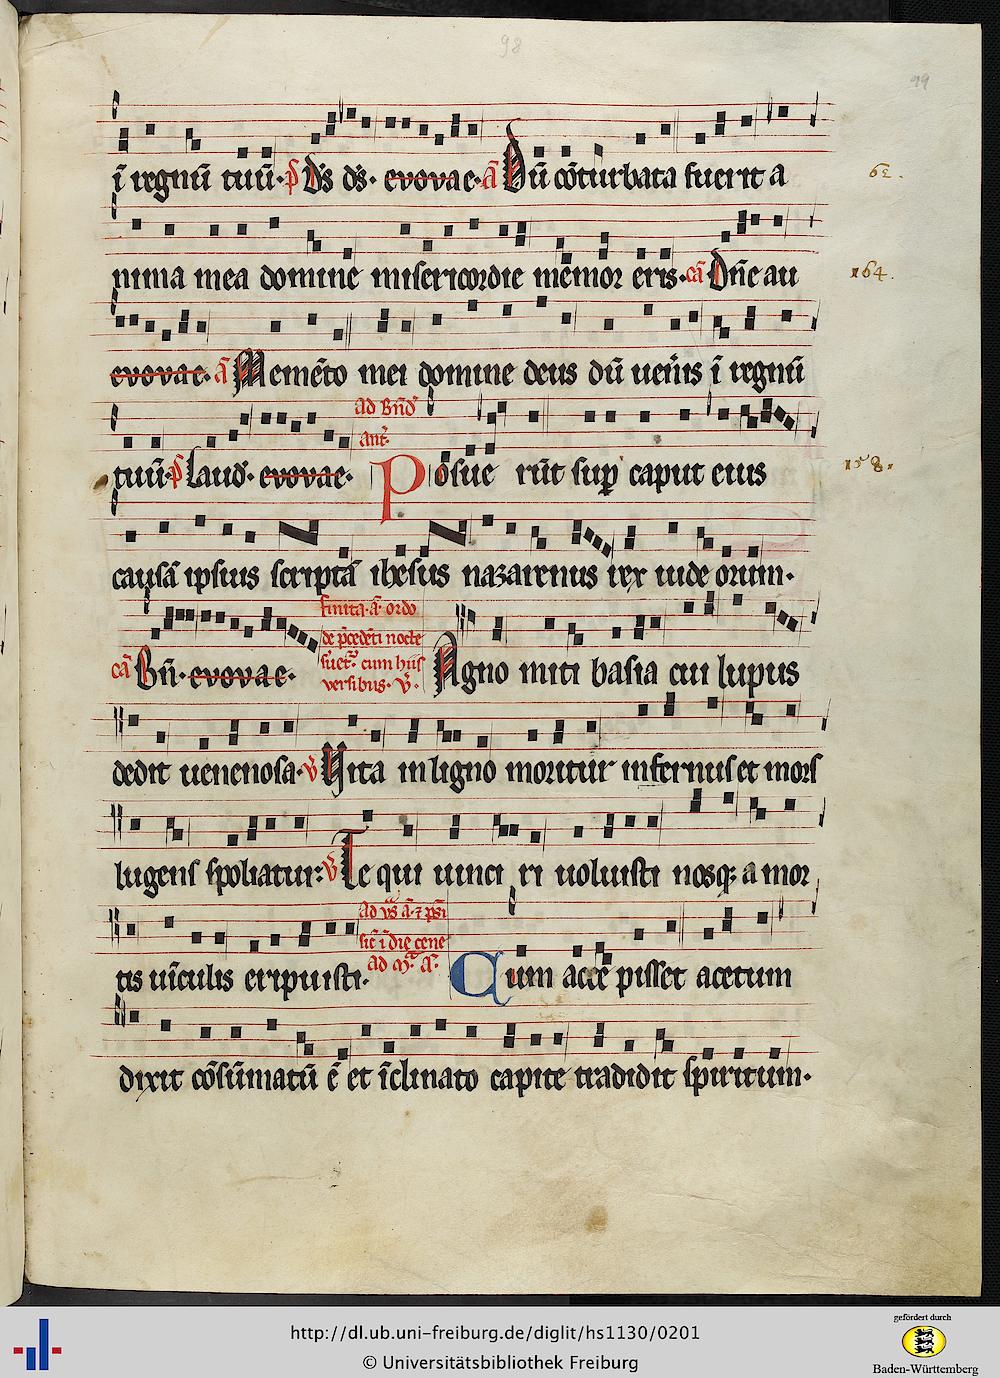 98
99
ī regnū tuū· p̄ Ds̄ ds̄· evovae· ā Dū cōturbata fuerit a
62.
nima mea domine misericordie mēmor eris· cā Dn̄e au
164.
evovae· ā Memēto mei domine deus dū uen̄is ī regnū
ad Bn̄d'
ant'.
tuū· p̄ Laud'· evovae· Posue rūt sup caput eius
158.
causā ipsius scriptā ihesus nazarenus rex iude orum·
finita· ā· ordo
de p̄cedēti nocte
cā Bn̄· evovae· suet'· cum hiis Agno miti basia cui lupus
versibus· v̄·
dedit uenenosa· v̄ Uita in ligno moritur infernus et mors
lugens spoliatur: v̄ Te qui uinci ri uoluisti nosq; a mor
ad v̄s ā· ⁊ ps̄i
sic̄ ī die cene
tis uīculis eripuisti· ad M̄· ā· Cum acce pisset acetum
dixit cōsūmatū ē et īclinato capite tradidit spiritum·
http://dl.ub.uni-freiburg.de/diglit/hs1130/0201
© Universitätsbibliothek Freiburg
gefördert durch
Baden-Württemberg